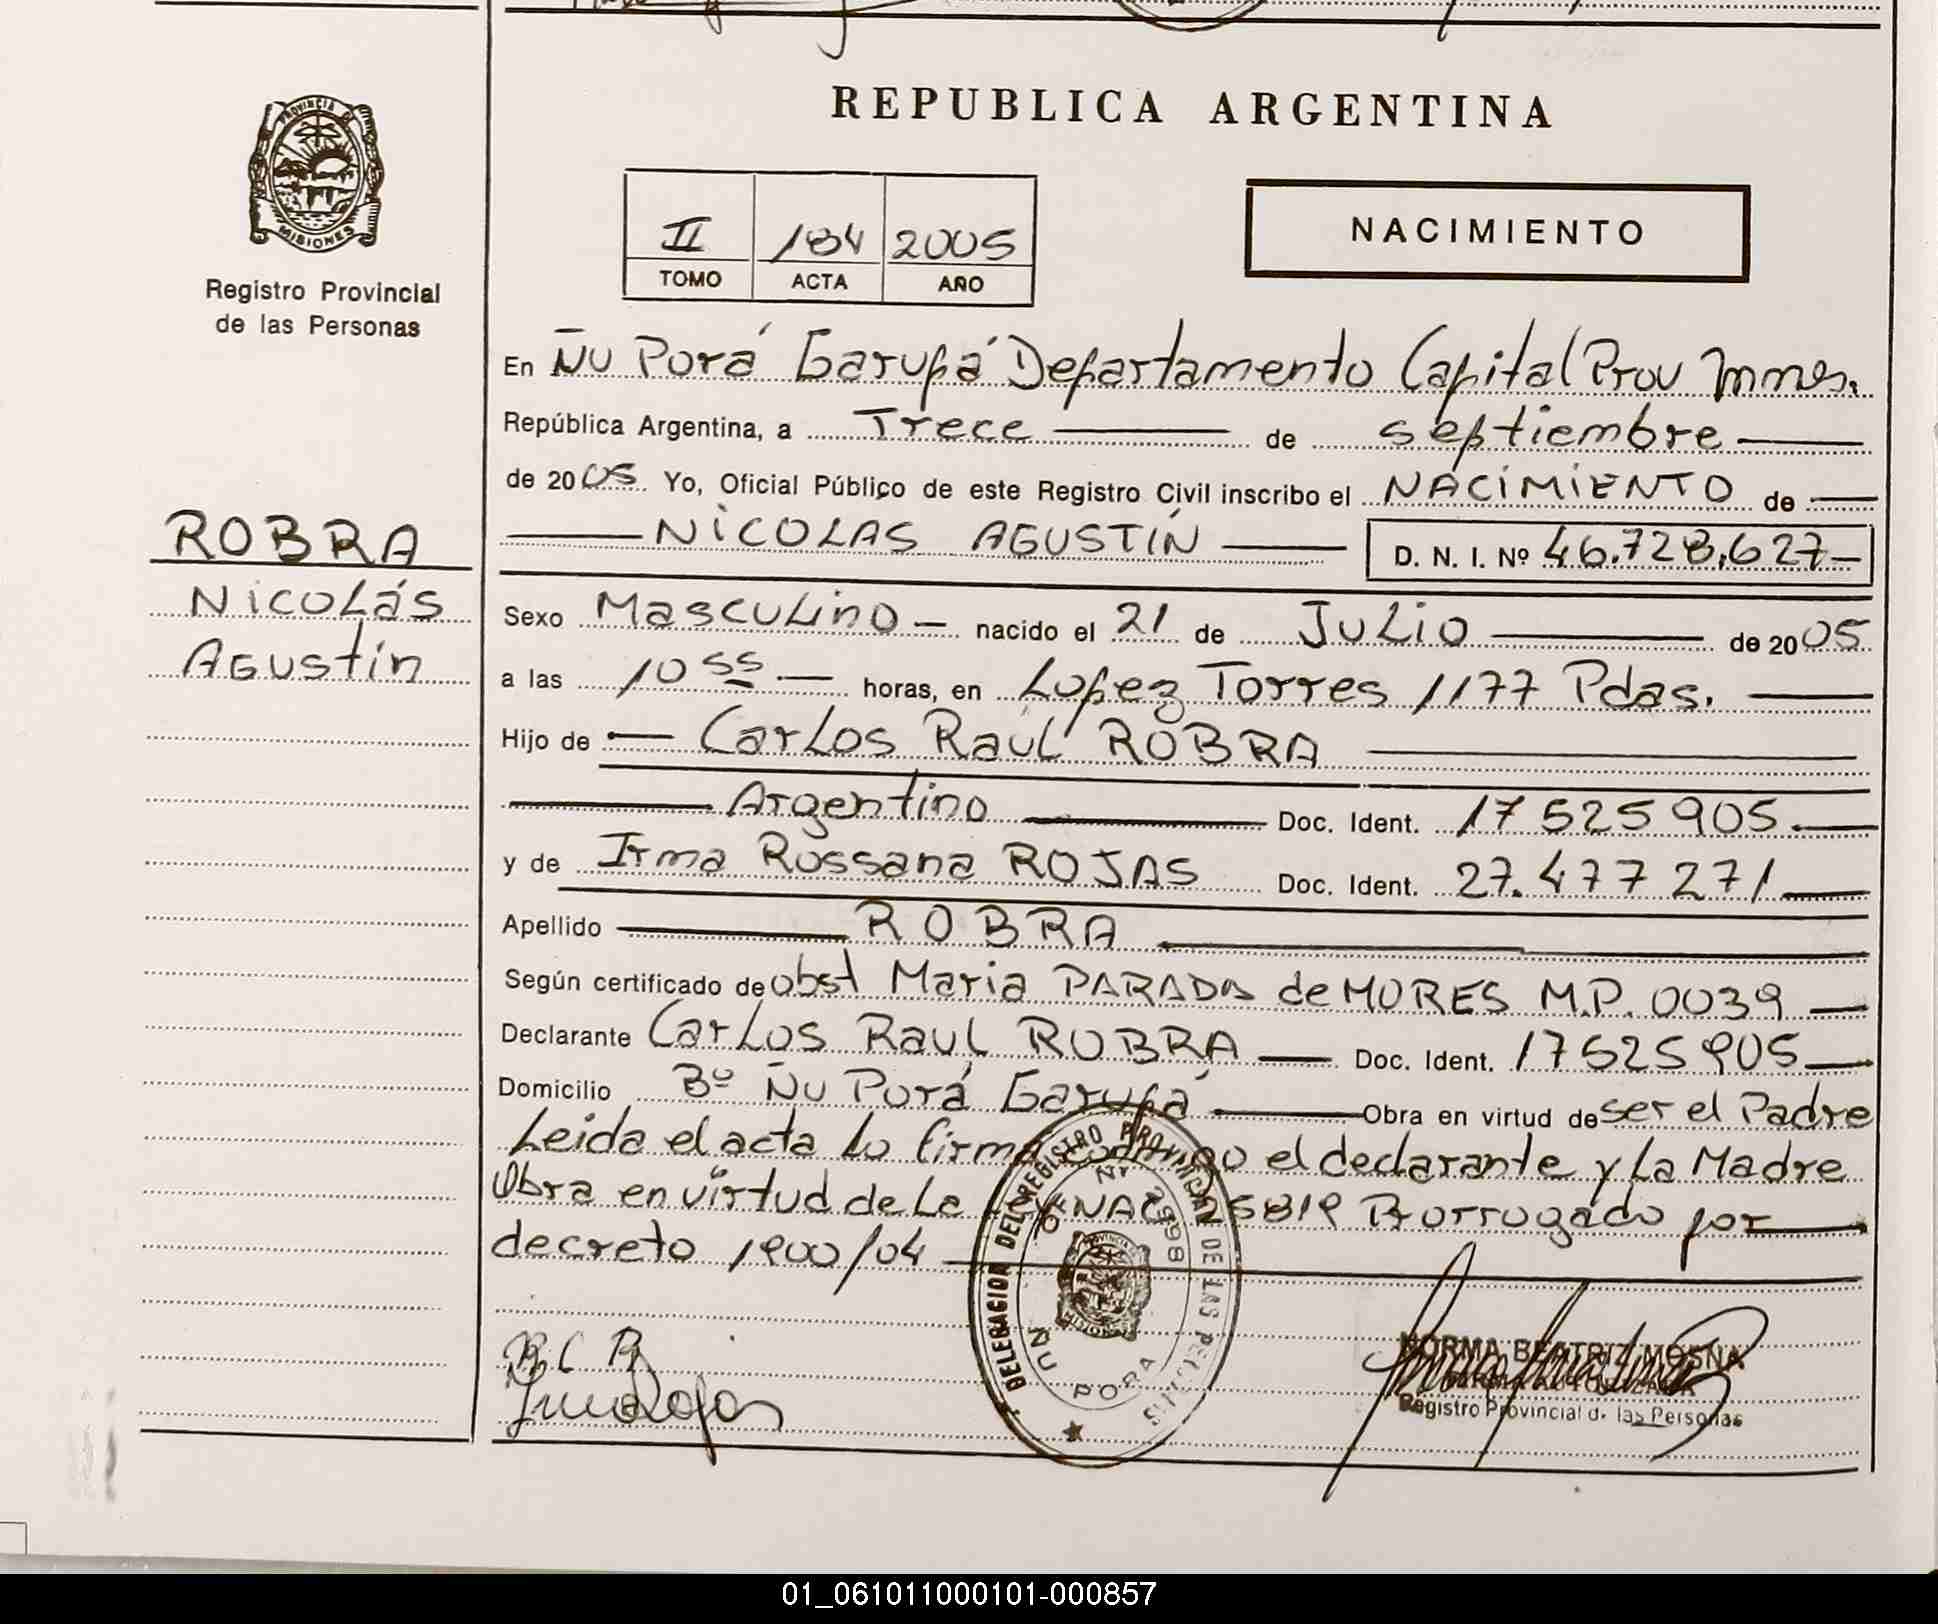 REPUBLICA ARGENTINA
PROVINCIA DE
MISIONES
Registro Provincial
de las Personas
II 184 2005
TOMO ACTA AÑO
NACIMIENTO
En Ñu Porá Garupá Departamento Capital Prov Mnes.
República Argentina, a Trece de septiembre
de 2005 Yo, Oficial Público de este Registro Civil inscribo el NACIMIENTO de
NICOLAS AGUSTÍN D. N. I. Nº 46.728.627
ROBRA
Nicolás
Agustín
Sexo Masculino nacido el 21 de Julio de 2005
a las 10 55 horas, en Lopez Torres 1177 Pdas.
Hijo de Carlos Raúl ROBRA
Argentino Doc. Ident. 17 525 905
y de Irma Rossana ROJAS Doc. Ident. 27.477 271
Apellido ROBRA
Según certificado de obst Maria PARADA de MORES M.P. 0039
Declarante Carlos Raul ROBRA Doc. Ident. 17525905
Domicilio Bº Ñu Porá Garupá Obra en virtud de ser el Padre
Leida el acta lo firma conmigo el declarante y La Madre
Obra en virtud de La NAC 25819 Prorrogado por
decreto 1900/04
DELEGACION DEL REGISTRO PROVINCIAL DE LAS PERSONAS
OF. Nº 2998
ÑU PORA
NORMA BEATRIZ MOSNA
Registro Provincial de las Personas
01_061011000101-000857